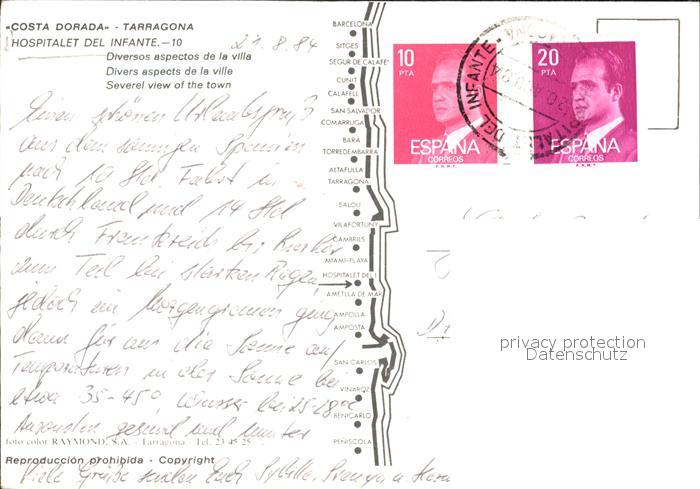 «COSTA DORADA» - TARRAGONA
HOSPITALET DEL INFANTE.—10
21.8.84
Diversos aspectos de la villa
Divers aspects de la ville
Severel view of the town
Einen schönen Urlaubsgruß
aus dem sonnigen Spanien
nach 10 Std. Fahrt in
Deutschland und 14 Std
durch Frankreich bis hierher
zum Teil bei starken Regen,
jedoch im Morgengrauen ging
dann für uns die Sonne auf
Temperaturen in der Sonne bei
etwa 35-45°, Wasser bei 25-28°C
Ansonsten gesund und munter
foto color RAYMOND, S.A. - Tarragona - Tel. 23 45 25
Reproducción prohibida - Copyright
Viele Grüße senden Euch Sybille,
BARCELONA
SITGES
SEGUR DE CALAFE'
CUNIT
CALAFELL
SAN SALVADOR
COMARRUGA
BARA
TORREDEMBARRA
ALTAFULLA
TARRAGONA
SALOU
VILAFORTUNY
CAMBRILS
MIAMI-PLAYA
HOSPITALET DEL I
AMETLLA DE MAR
AMPOLLA
AMPOSTA
SAN CARLOS
VINAROZ
BENICARLO
PEÑISCOLA
10
PTA
ESPAÑA
CORREOS
F.N.M.T.
20
PTA
ESPAÑA
CORREOS
F.N.M.T.
DEL INFANTE
privacy protection
Datenschutz